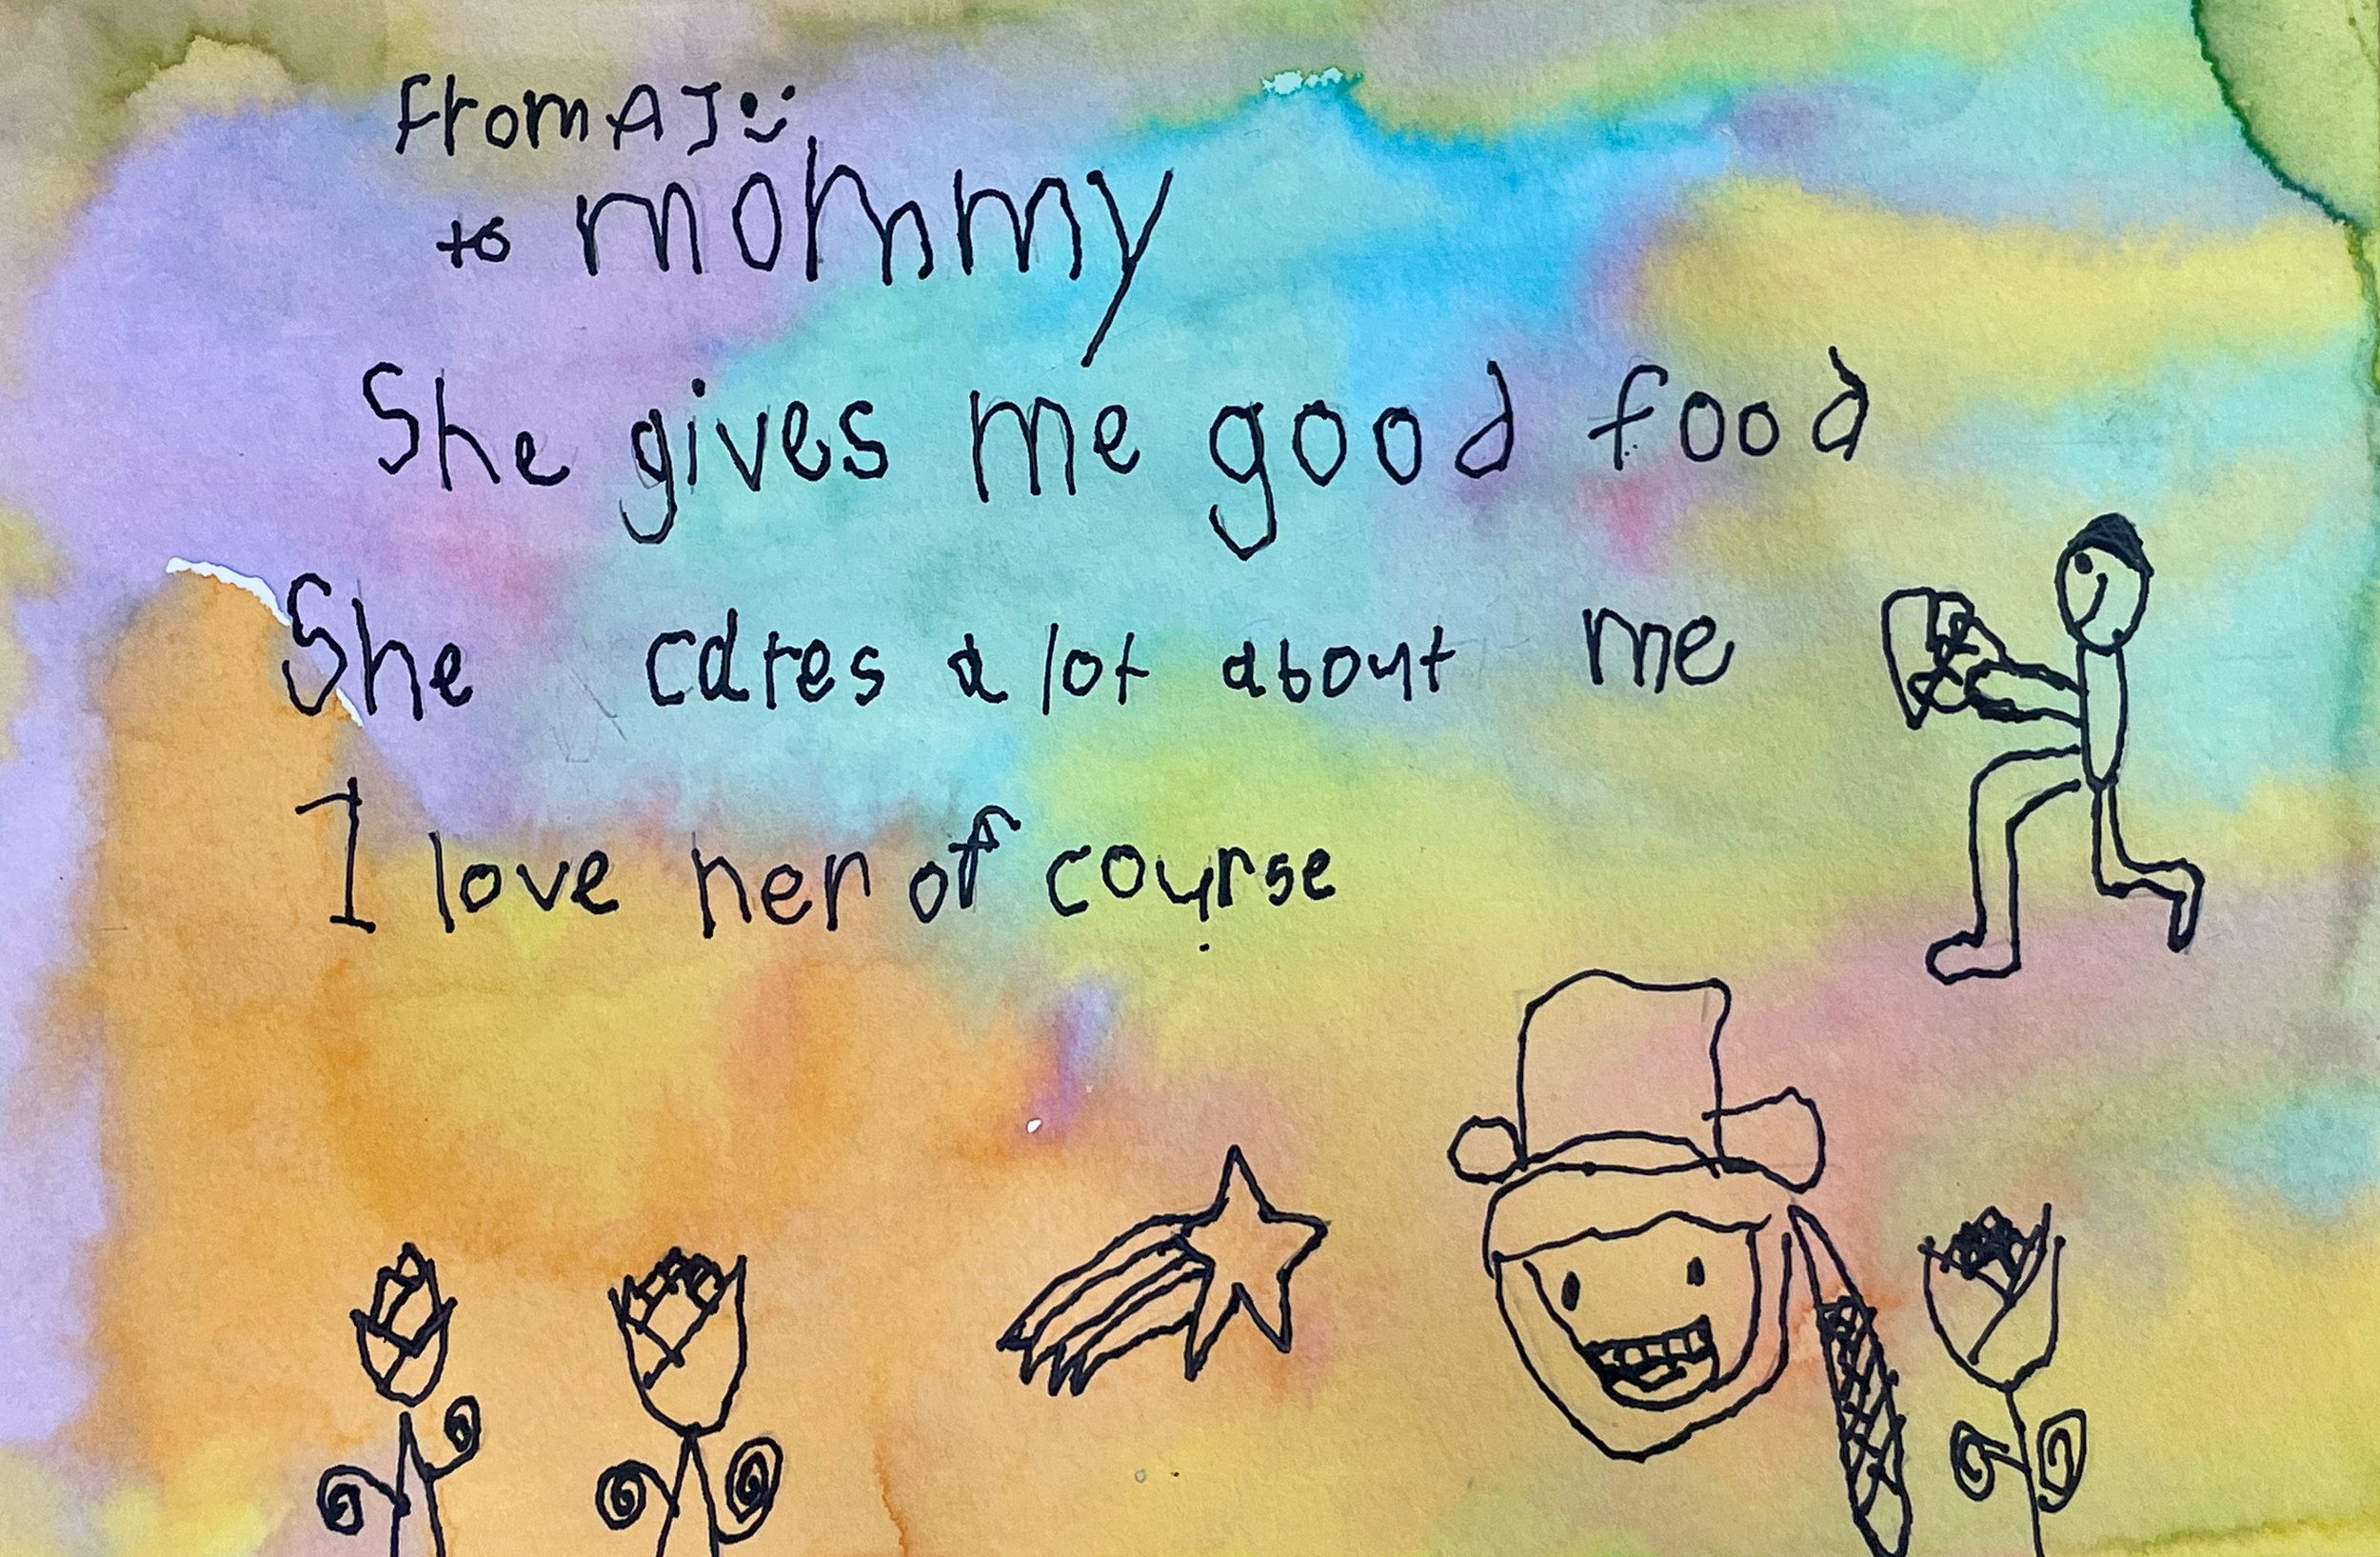 From AJ
to mommy
She gives me good food
She cares a lot about me
I love her of course